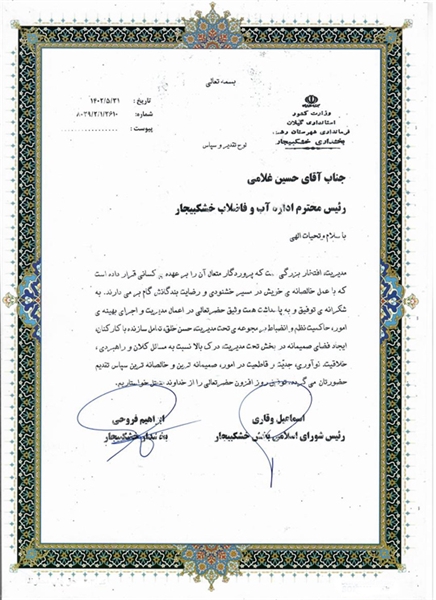 بسمه تعالی
وزارت کشور
استانداری گیلان
فرمانداری شهرستان رشت
بخشداری خشکبیجار
تاریخ: ۱۴۰۲/۵/۳۱
شماره: ۸۰۳۹/۲/۱/۲۶۱۰
پیوست: ..............
لوح تقدیر و سپاس
جناب آقای حسین غلامی
رئیس محترم اداره آب و فاضلاب خشکبیجار
با سلام و تحیات الهی
مدیریت، افتخار بزرگی است که پروردگار متعال آن را بر عهده ی کسانی قرار داده است
که با عمل خالصانه ی خویش در مسیر خشنودی و رضایت بندگانش گام بر می دارند. به
شکرانه ی توفیق و به پاسداشت همت وثیق حضرتعالی در اعمال مدیریت و اجرای بهینه ی
امور، حاکمیت نظم و انضباط در مجموعه ی تحت مدیریت، حسن خلق، تعامل سازنده با کارکنان،
ایجاد فضای صمیمانه در بخش تحت مدیریت، درک بالا نسبت به مسائل کلان و راهبردی،
خلاقیت، نوآوری، جدیّت و قاطعیت در امور، صمیمانه ترین و خالصانه ترین سپاس تقدیم
حضورتان می گردد. توفیق روز افزون حضرتعالی را از خداوند خواستاریم.
اسماعیل وقاری
رئیس شورای اسلامی بخش خشکبیجار
ابراهیم فروحی
بخشدار خشکبیجار